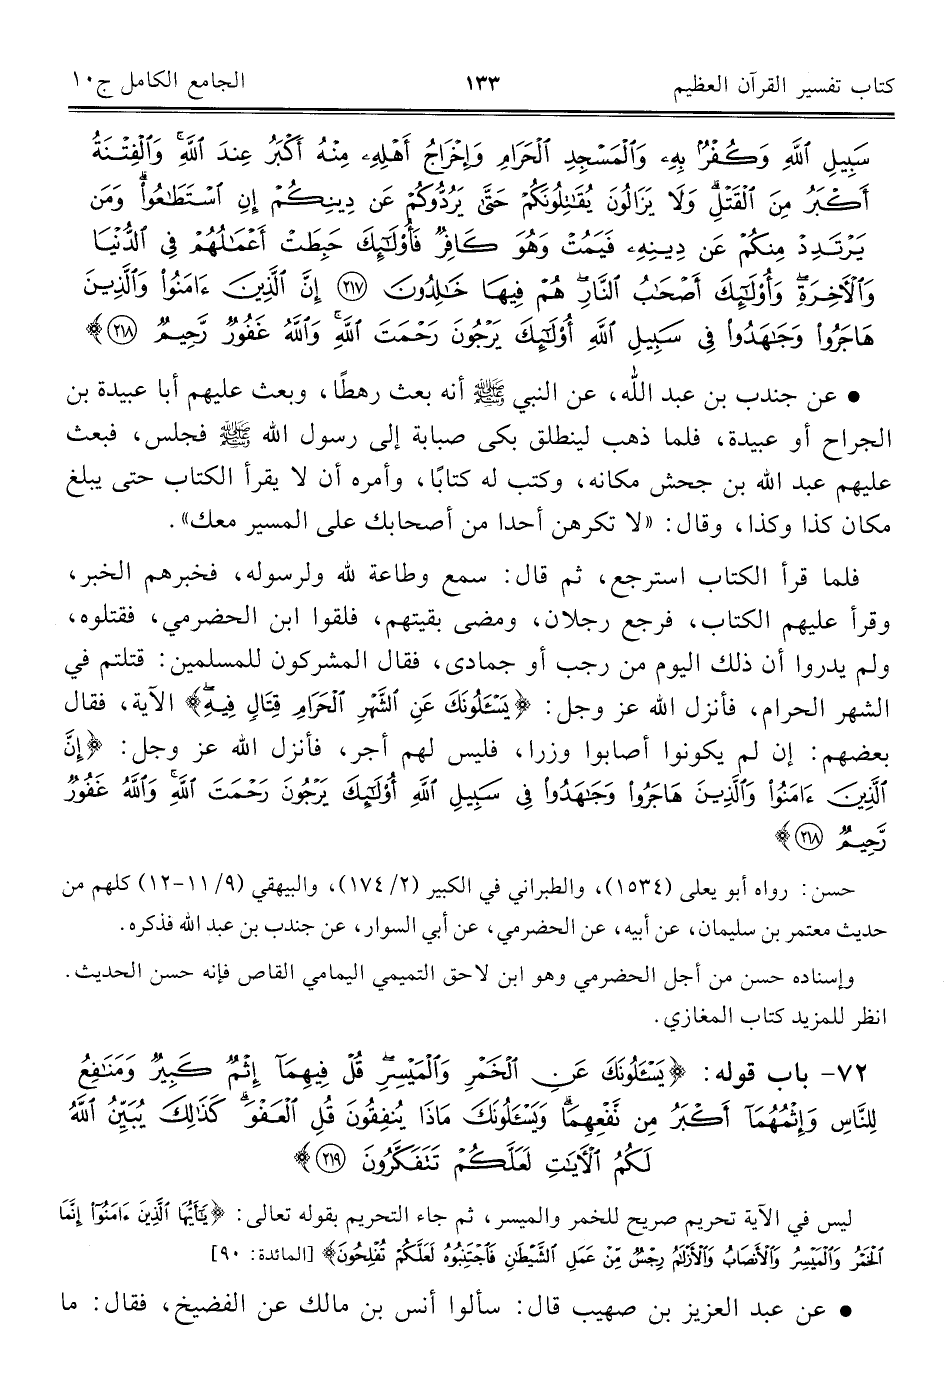 كتاب تفسير القرآن العظيم ١٣٣ الجامع الكامل ج١٠
سَبِيلِ ٱللَّهِ وَكُفْرٌۢ بِهِۦ وَٱلْمَسْجِدِ ٱلْحَرَامِ وَإِخْرَاجُ أَهْلِهِۦ مِنْهُ أَكْبَرُ عِندَ ٱللَّهِۚ وَٱلْفِتْنَةُ
أَكْبَرُ مِنَ ٱلْقَتْلِۗ وَلَا يَزَالُونَ يُقَٰتِلُونَكُمْ حَتَّىٰ يَرُدُّوكُمْ عَن دِينِكُمْ إِنِ ٱسْتَطَٰعُوا۟ۚ وَمَن
يَرْتَدِدْ مِنكُمْ عَن دِينِهِۦ فَيَمُتْ وَهُوَ كَافِرٌ فَأُو۟لَٰٓئِكَ حَبِطَتْ أَعْمَٰلُهُمْ فِى ٱلدُّنْيَا
وَٱلْءَاخِرَةِۖ وَأُو۟لَٰٓئِكَ أَصْحَٰبُ ٱلنَّارِۖ هُمْ فِيهَا خَٰلِدُونَ ٢١٧ إِنَّ ٱلَّذِينَ ءَامَنُوا۟ وَٱلَّذِينَ
هَاجَرُوا۟ وَجَٰهَدُوا۟ فِى سَبِيلِ ٱللَّهِ أُو۟لَٰٓئِكَ يَرْجُونَ رَحْمَتَ ٱللَّهِۚ وَٱللَّهُ غَفُورٌ رَّحِيمٌ ٢١٨﴾
• عن جندب بن عبد الله، عن النبي ﷺ أنه بعث رهطًا، وبعث عليهم أبا عبيدة بن
الجراح أو عبيدة، فلما ذهب لينطلق بكى صبابة إلى رسول الله ﷺ فجلس، فبعث
عليهم عبد الله بن جحش مكانه، وكتب له كتابًا، وأمره أن لا يقرأ الكتاب حتى يبلغ
مكان كذا وكذا، وقال: «لا تكرهن أحدا من أصحابك على المسير معك».
فلما قرأ الكتاب استرجع، ثم قال: سمع وطاعة لله ولرسوله، فخبرهم الخبر،
وقرأ عليهم الكتاب، فرجع رجلان، ومضى بقيتهم، فلقوا ابن الحضرمي، فقتلوه،
ولم يدروا أن ذلك اليوم من رجب أو جمادى، فقال المشركون للمسلمين: قتلتم في
الشهر الحرام، فأنزل الله عز وجل: ﴿يَسْـَٔلُونَكَ عَنِ ٱلشَّهْرِ ٱلْحَرَامِ قِتَالٍ فِيهِۖ﴾ الآية، فقال
بعضهم: إن لم يكونوا أصابوا وزرا، فليس لهم أجر، فأنزل الله عز وجل: ﴿إِنَّ
ٱلَّذِينَ ءَامَنُوا۟ وَٱلَّذِينَ هَاجَرُوا۟ وَجَٰهَدُوا۟ فِى سَبِيلِ ٱللَّهِ أُو۟لَٰٓئِكَ يَرْجُونَ رَحْمَتَ ٱللَّهِۚ وَٱللَّهُ غَفُورٌ
رَّحِيمٌ ٢١٨﴾
حسن: رواه أبو يعلى (١٥٣٤)، والطبراني في الكبير (٢/ ١٧٤)، والبيهقي (٩/ ١١-١٢) كلهم من
حديث معتمر بن سليمان، عن أبيه، عن الحضرمي، عن أبي السوار، عن جندب بن عبد الله فذكره.
وإسناده حسن من أجل الحضرمي وهو ابن لاحق التميمي اليمامي القاص فإنه حسن الحديث.
انظر للمزيد كتاب المغازي.
٧٢- باب قوله: ﴿يَسْـَٔلُونَكَ عَنِ ٱلْخَمْرِ وَٱلْمَيْسِرِۖ قُلْ فِيهِمَآ إِثْمٌ كَبِيرٌ وَمَنَٰفِعُ
لِلنَّاسِ وَإِثْمُهُمَآ أَكْبَرُ مِن نَّفْعِهِمَاۗ وَيَسْـَٔلُونَكَ مَاذَا يُنفِقُونَ قُلِ ٱلْعَفْوَۗ كَذَٰلِكَ يُبَيِّنُ ٱللَّهُ
لَكُمُ ٱلْءَايَٰتِ لَعَلَّكُمْ تَتَفَكَّرُونَ ٢١٩﴾
ليس في الآية تحريم صريح للخمر والميسر، ثم جاء التحريم بقوله تعالى: ﴿يَٰٓأَيُّهَا ٱلَّذِينَ ءَامَنُوٓا۟ إِنَّمَا
ٱلْخَمْرُ وَٱلْمَيْسِرُ وَٱلْأَنصَابُ وَٱلْأَزْلَٰمُ رِجْسٌ مِّنْ عَمَلِ ٱلشَّيْطَٰنِ فَٱجْتَنِبُوهُ لَعَلَّكُمْ تُفْلِحُونَ﴾ [المائدة: ٩٠]
• عن عبد العزيز بن صهيب قال: سألوا أنس بن مالك عن الفضيخ، فقال: ما